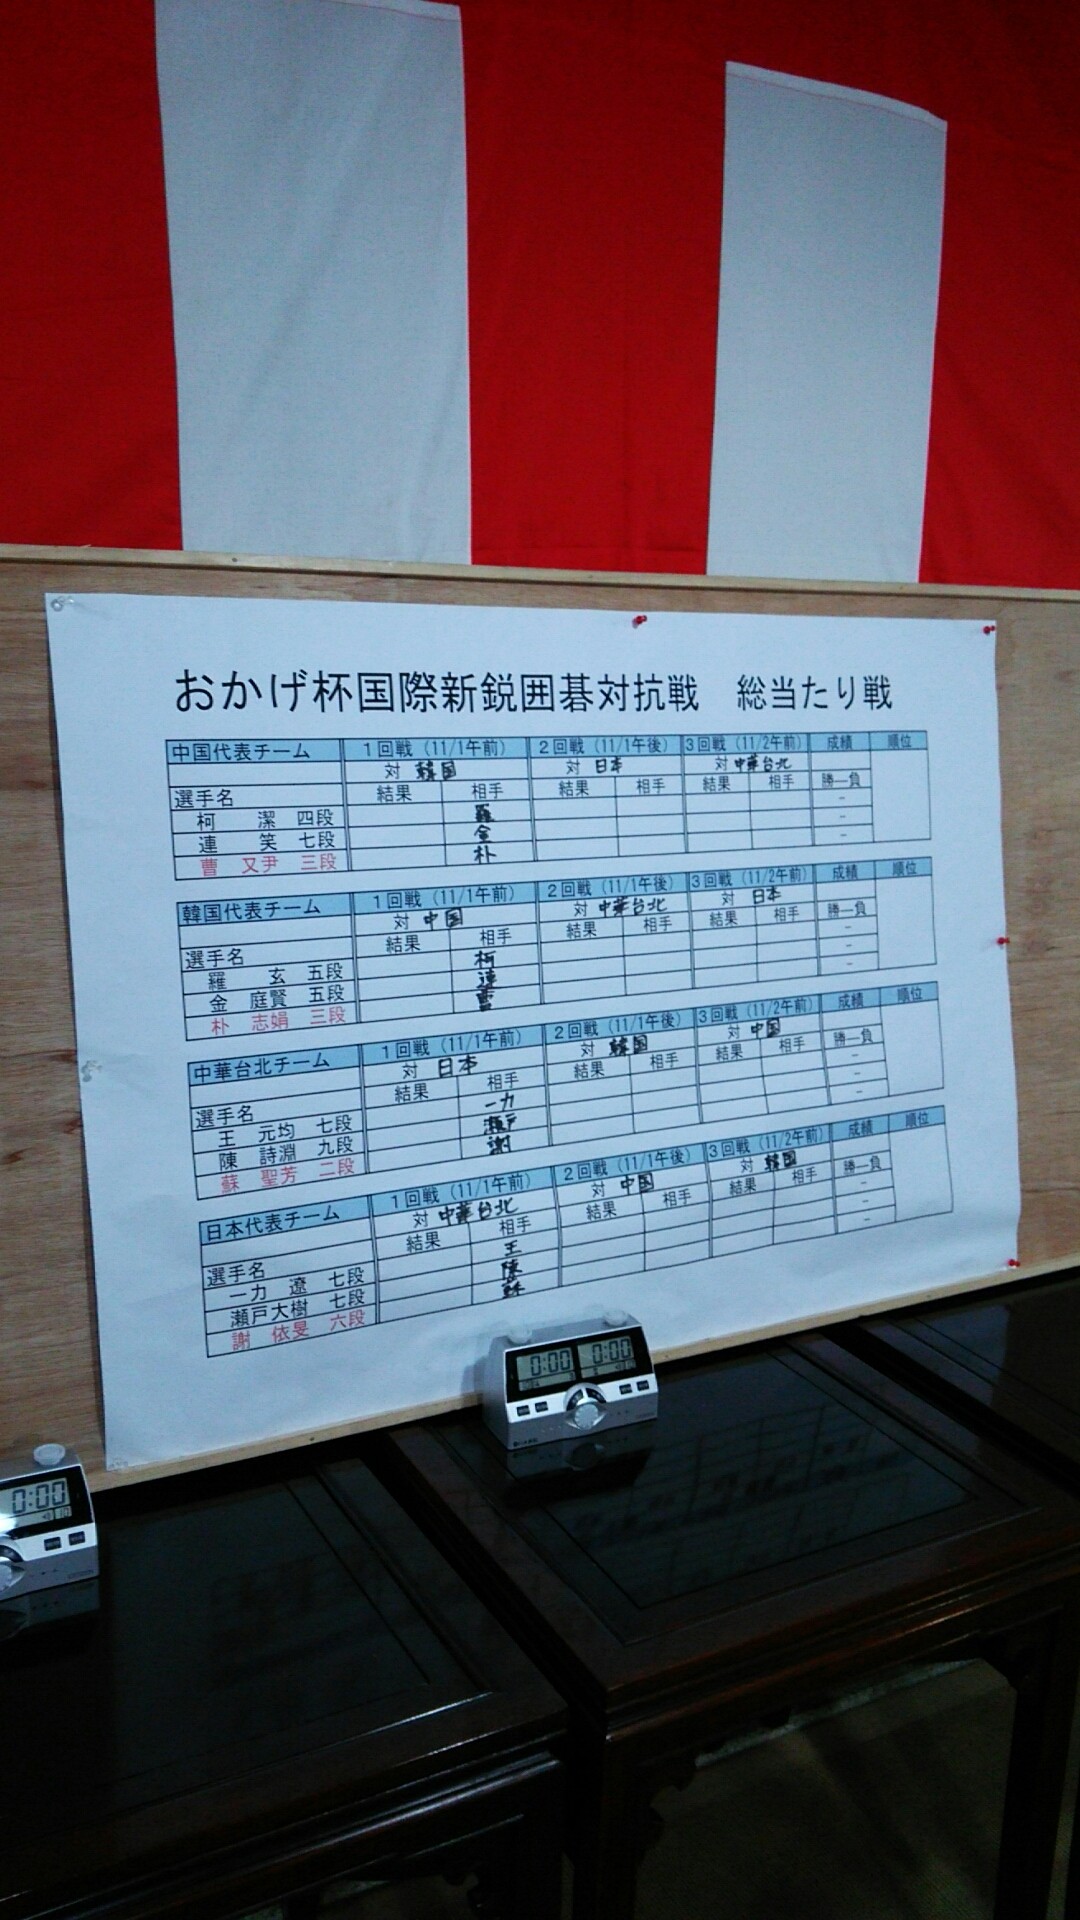 おかげ杯国際新鋭囲碁対抗戦 総当たり戦
中国代表チーム 1回戦（11/1午前） 2回戦（11/1午後） 3回戦（11/2午前） 成績 順位
対 韓国 対 日本 対 中華台北
選手名 結果 相手 結果 相手 結果 相手 勝―負
柯 潔 四段 羅 －
連 笑 七段 金 －
曹 又尹 三段 朴 －
韓国代表チーム 1回戦（11/1午前） 2回戦（11/1午後） 3回戦（11/2午前） 成績 順位
対 中国 対 中華台北 対 日本
選手名 結果 相手 結果 相手 結果 相手 勝―負
羅 玄 五段 柯 －
金 庭賢 五段 連 －
朴 志娟 三段 曹 －
中華台北チーム 1回戦（11/1午前） 2回戦（11/1午後） 3回戦（11/2午前） 成績 順位
対 日本 対 韓国 対 中国
選手名 結果 相手 結果 相手 結果 相手 勝―負
王 元均 七段 一力 －
陳 詩淵 九段 瀬戸 －
蘇 聖芳 二段 謝 －
日本代表チーム 1回戦（11/1午前） 2回戦（11/1午後） 3回戦（11/2午前） 成績 順位
対 中華台北 対 中国 対 韓国
選手名 結果 相手 結果 相手 結果 相手 勝―負
一力 遼 七段 王 －
瀬戸大樹 七段 陳 －
謝 依旻 六段 蘇 －
0:00 0:00
0:00